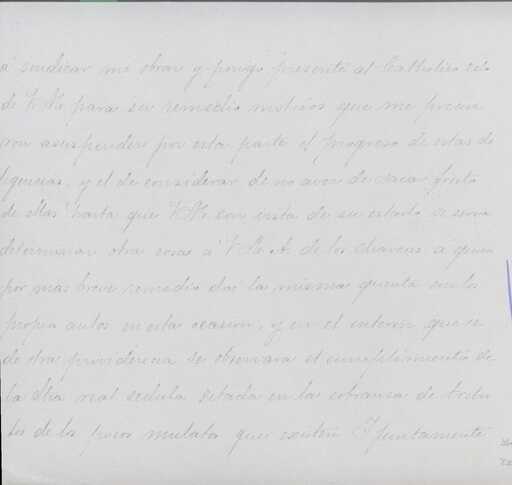 a sindicar mi obrar y pongo presente al Catholico celo
de V.M. para su remedio motivos que me preci
ron a suspender por esta parte el progreso de estas de
ligencias, y el de considerar de no aver de sacar fruto
de ellas hasta que V.M. con vista de su estado se sirva
determinar otra cosa a V.M. de los a quien
por mas breve remedio doi la misma quenta con los
propios autos en esta ocasion, y en el interin que se
de otra providencia se observara el cumplimiento de
la dha real sedula sitada en la cobransa de tribu
tos de los pocos mulatos que existen Y juntamente